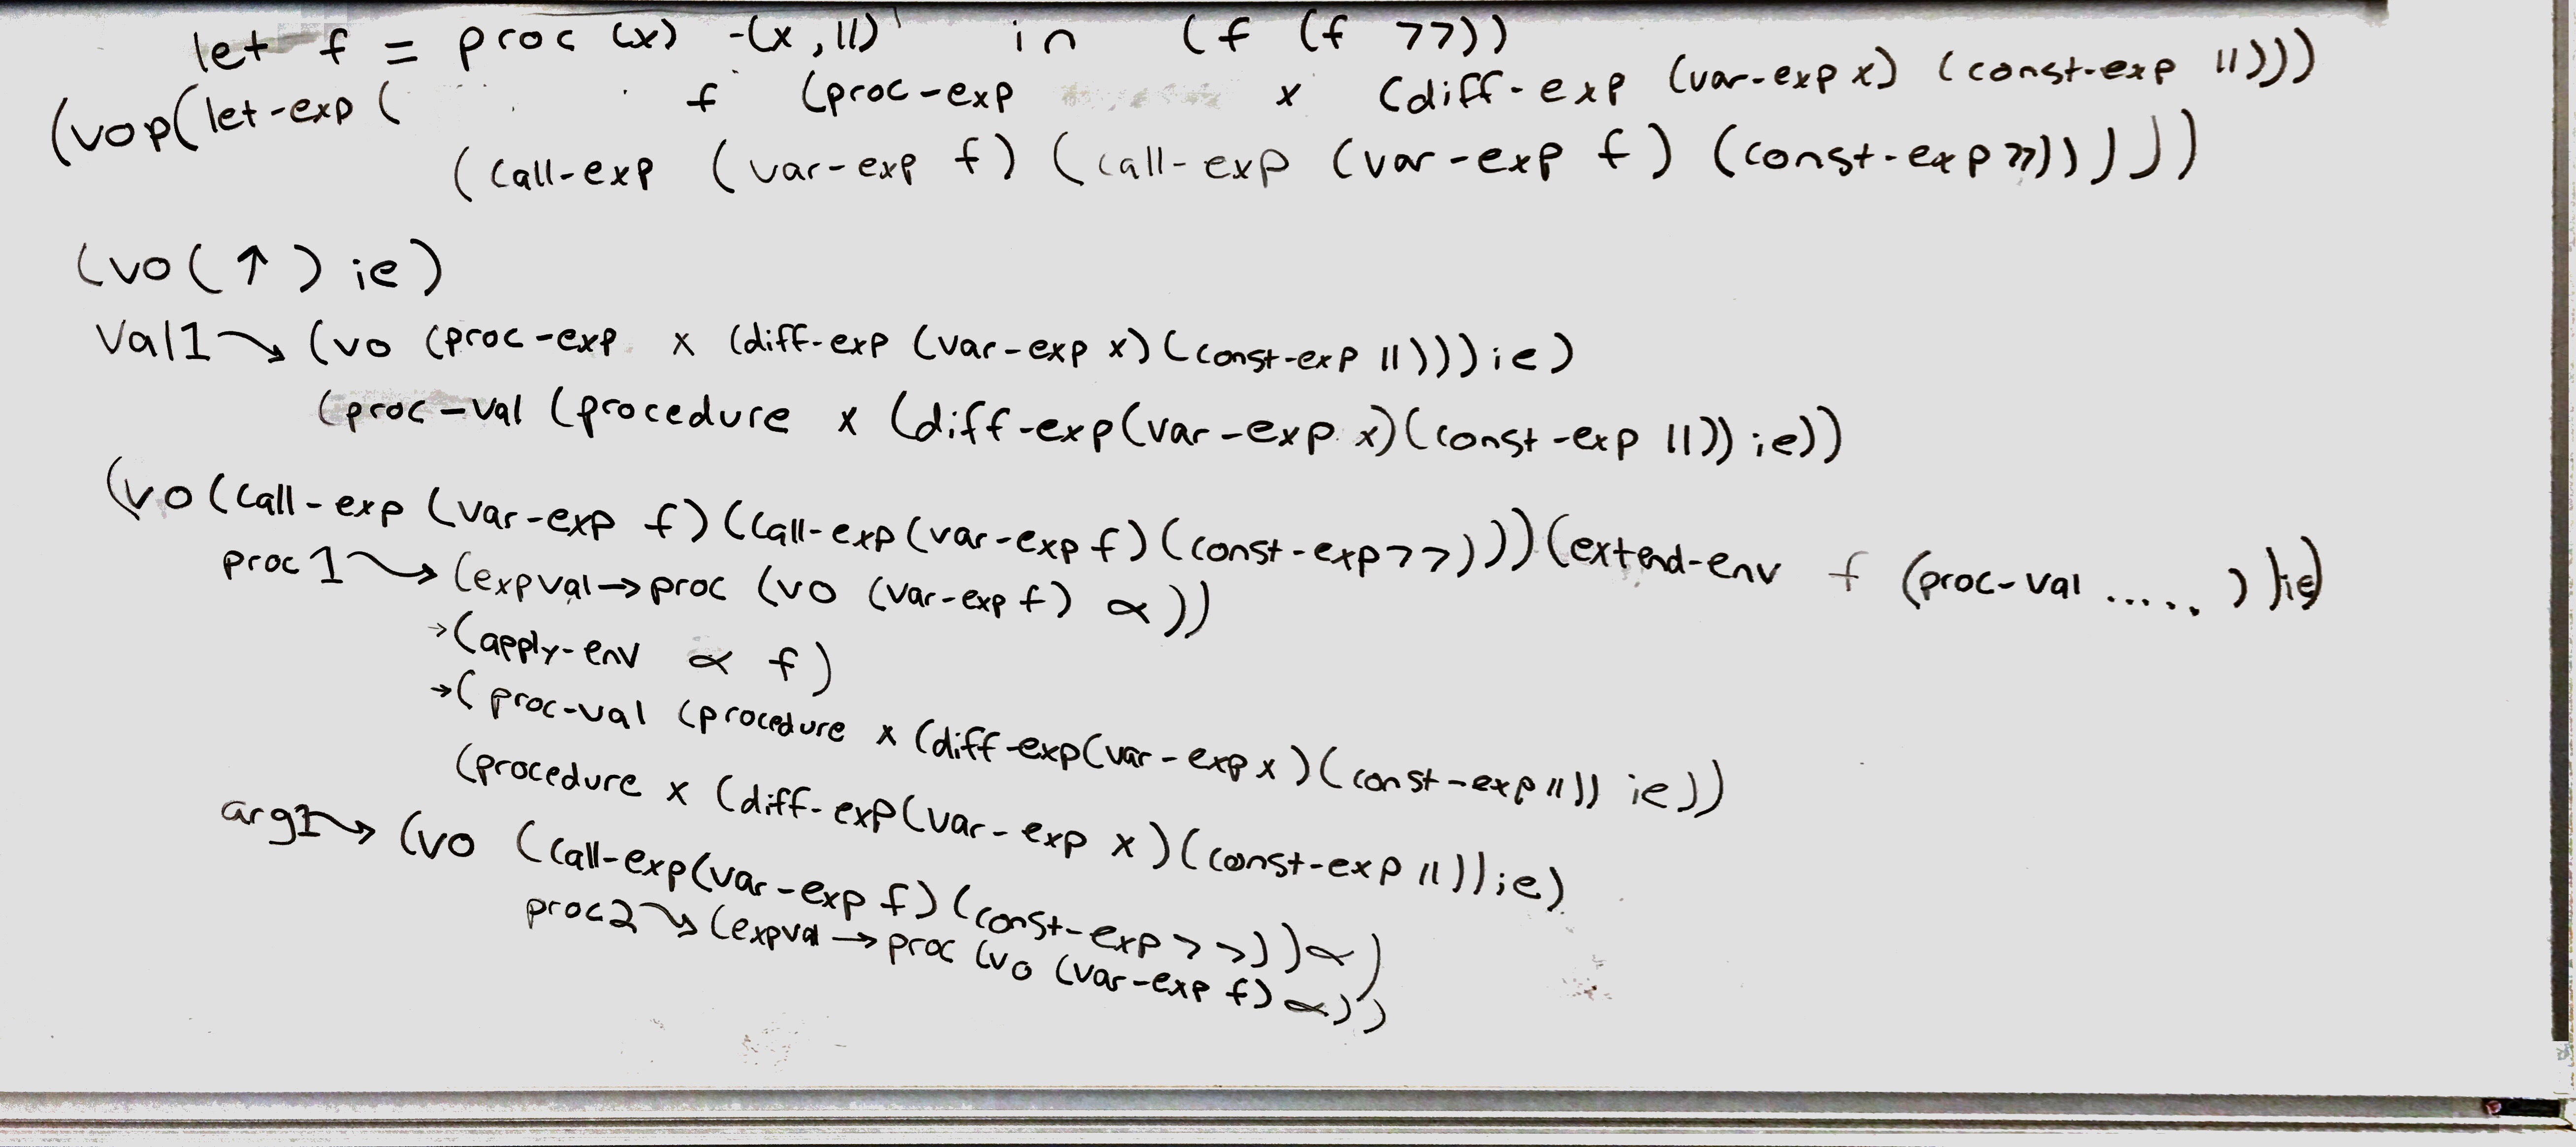 let f = proc (x) -(x,11) in (f (f 77))
(vop(let-exp ( f (proc-exp x (diff-exp (var-exp x) (const-exp 11)))
(call-exp (var-exp f) (call-exp (var-exp f) (const-exp 77)))))
(vo(↑) ie)
Val1 → (vo (proc-exp x (diff-exp (var-exp x)(const-exp 11))) ie)
(proc-val (procedure x (diff-exp(var-exp x)(const-exp 11)) ie))
(vo(call-exp (var-exp f)(call-exp(var-exp f)(const-exp 77))))(extend-env f (proc-val .....) )ie)
proc1 → (expval→proc (vo (var-exp f) ∝))
→(apply-env ∝ f)
→(proc-val (procedure x (diff-exp(var-exp x)(const-exp 11)) ie))
(procedure x (diff-exp(var-exp x)(const-exp 11)) ie)
arg1 → (vo (call-exp(var-exp f)(const-exp 77))∝)
proc2 → (expval→proc (vo (var-exp f) ∝))